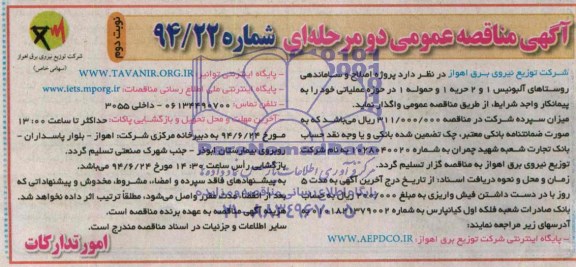 آگهی مناقصه عمومی دو مرحله‌ای شماره ۹۴/۲۲
نوبت دوم
شرکت توزیع نیروی برق اهواز
(سهامی خاص)
شرکت توزیع نیروی برق اهواز در نظر دارد پروژه اصلاح و ساماندهی
روستاهای آلبونیس ۱ و ۲ حربه ۱ و حموله ۱ در حوزه عملیاتی خود را به
پیمانکار واجد شرایط، از طریق مناقصه عمومی واگذار نماید.
میزان سپرده شرکت در مناقصه ۳۱۱/۰۰۰/۰۰۰ ریال می‌باشد که به
صورت ضمانتنامه بانکی معتبر، چک تضمین شده بانکی و یا وجه نقد حساب
بانک تجارت شعبه شهید چمران به شماره بنام شرکت
توزیع نیروی برق اهواز به مناقصه گزار تسلیم گردد.
زمان و محل و نحوه دریافت اسناد: از تاریخ درج آخرین آگهی به مدت ۵
روز با در دست داشتن فیش واریزی به مبلغ ریال به حساب
بانک صادرات شعبه فلکه اول کیانپارس به شماره به
آدرسهای زیر مراجعه نمایند:
– پایگاه اینترنتی شرکت توزیع برق اهواز: WWW.AEPDCO.IR
– پایگاه اینترنتی توانیر: WWW.TAVANIR.ORG.IR
– پایگاه اینترنتی ملی اطلاع رسانی مناقصات: www.iets.mporg.ir
– تلفن تماس: ۰۶۱۳۴۴۹۰۷۰۰ – داخلی ۳۰۵۵
آخرین مهلت و محل تحویل و بازگشایی پاکات: حداکثر تا ساعت ۱۳:۰۰
مورخ ۹۴/۶/۲۴ به دبیرخانه مرکزی شرکت: اهواز – بلوار پاسداران –
روبروی بیمارستان ابوذر – جنب شهرک صنعتی تسلیم گردد.
بازگشایی رأس ساعت ۱۴:۳۰ مورخ ۹۴/۶/۲۴ می‌باشد.
به پیشنهادهای فاقد سپرده و امضاء، مشروط، مخدوش و پیشنهاداتی که
بعد از انقضاء مدت مقرر واصل می‌شود، مطلقاً ترتیب اثر داده نخواهد شد.
هزینه آگهی مناقصه به عهده برنده مناقصه است.
سایر اطلاعات و جزئیات در اسناد مناقصه مندرج است.
امور تدارکات